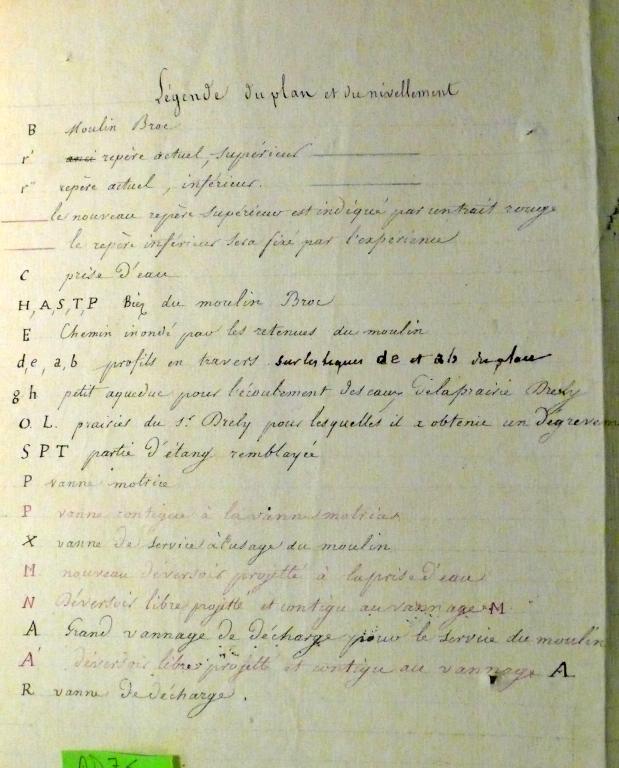 Légende du plan et du nivellement
B Moulin Broc
r' anci repère actuel, supérieur
r" repère actuel, inférieur.
le nouveau repère supérieur est indiqué par un trait rouge
le repère inférieur sera fixé par l'expérience
C prise d'eau
H, A, S, T, P Biez du moulin Broc
E Chemin inondé par les retenues du moulin
d, e, a, b profils en travers sur les lignes de et ab du plan
g h petit aqueduc pour l'écoulement des eaux de la prairie Brely
O. L. prairies du sr. Brely pour lesquelles il a obtenu un Dégrevem
S P T partie d'étang remblayée
P vanne motrice
P vanne contigue à la vanne motrice
X vanne de service à l'usage du moulin
M nouveau déversoir projetté à la prise d'eau
N Déversoir libre projetté et contigu au vannage M
A Grand vannage de décharge pour le service du moulin
A' déversoir libre projetté et contigu au vannage A
R vanne de décharge.